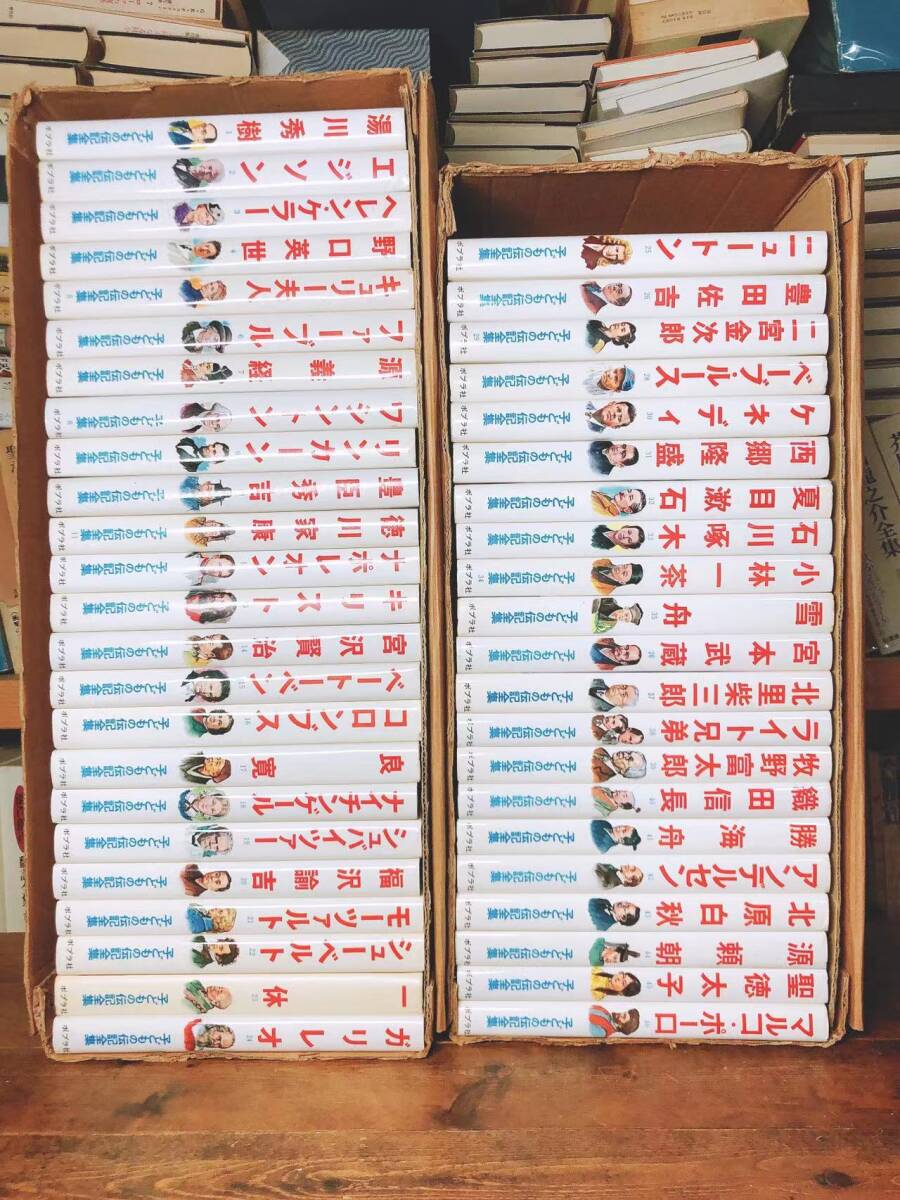 湯川秀樹 1 子どもの伝記全集 ポプラ社
エジソン 2 子どもの伝記全集 ポプラ社
ヘレン・ケラー 3 子どもの伝記全集 ポプラ社
野口英世 4 子どもの伝記全集 ポプラ社
キュリー夫人 5 子どもの伝記全集 ポプラ社
ファーブル 6 子どもの伝記全集 ポプラ社
源義経 7 子どもの伝記全集 ポプラ社
ワシントン 8 子どもの伝記全集 ポプラ社
リンカーン 9 子どもの伝記全集 ポプラ社
豊臣秀吉 子どもの伝記全集 ポプラ社
徳川家康 11 子どもの伝記全集 ポプラ社
ナポレオン 子どもの伝記全集 ポプラ社
キリスト 子どもの伝記全集 ポプラ社
宮沢賢治 14 子どもの伝記全集 ポプラ社
ベートーベン 15 子どもの伝記全集 ポプラ社
コロンブス 16 子どもの伝記全集 ポプラ社
良寛 17 子どもの伝記全集 ポプラ社
ナイチンゲール 18 子どもの伝記全集 ポプラ社
シュバイツァー 19 子どもの伝記全集 ポプラ社
福沢諭吉 20 子どもの伝記全集 ポプラ社
モーツァルト 21 子どもの伝記全集 ポプラ社
シューベルト 22 子どもの伝記全集 ポプラ社
一休 23 子どもの伝記全集 ポプラ社
ガリレオ 24 子どもの伝記全集 ポプラ社
ニュートン 25 子どもの伝記全集 ポプラ社
豊田佐吉 26 子どもの伝記全集 ポプラ社
二宮金次郎 子どもの伝記全集 ポプラ社
ベーブ・ルース 子どもの伝記全集 ポプラ社
ケネディ 30 子どもの伝記全集 ポプラ社
西郷隆盛 31 子どもの伝記全集 ポプラ社
夏目漱石 32 子どもの伝記全集 ポプラ社
石川啄木 33 子どもの伝記全集 ポプラ社
小林一茶 34 子どもの伝記全集 ポプラ社
雪舟 35 子どもの伝記全集 ポプラ社
宮本武蔵 36 子どもの伝記全集 ポプラ社
北里柴三郎 37 子どもの伝記全集 ポプラ社
ライト兄弟 38 子どもの伝記全集 ポプラ社
牧野富太郎 39 子どもの伝記全集 ポプラ社
織田信長 40 子どもの伝記全集 ポプラ社
勝海舟 41 子どもの伝記全集 ポプラ社
アンデルセン 42 子どもの伝記全集 ポプラ社
北原白秋 43 子どもの伝記全集 ポプラ社
源頼朝 44 子どもの伝記全集 ポプラ社
聖徳太子 45 子どもの伝記全集 ポプラ社
マルコ・ポーロ 46 子どもの伝記全集 ポプラ社
龍之介全集